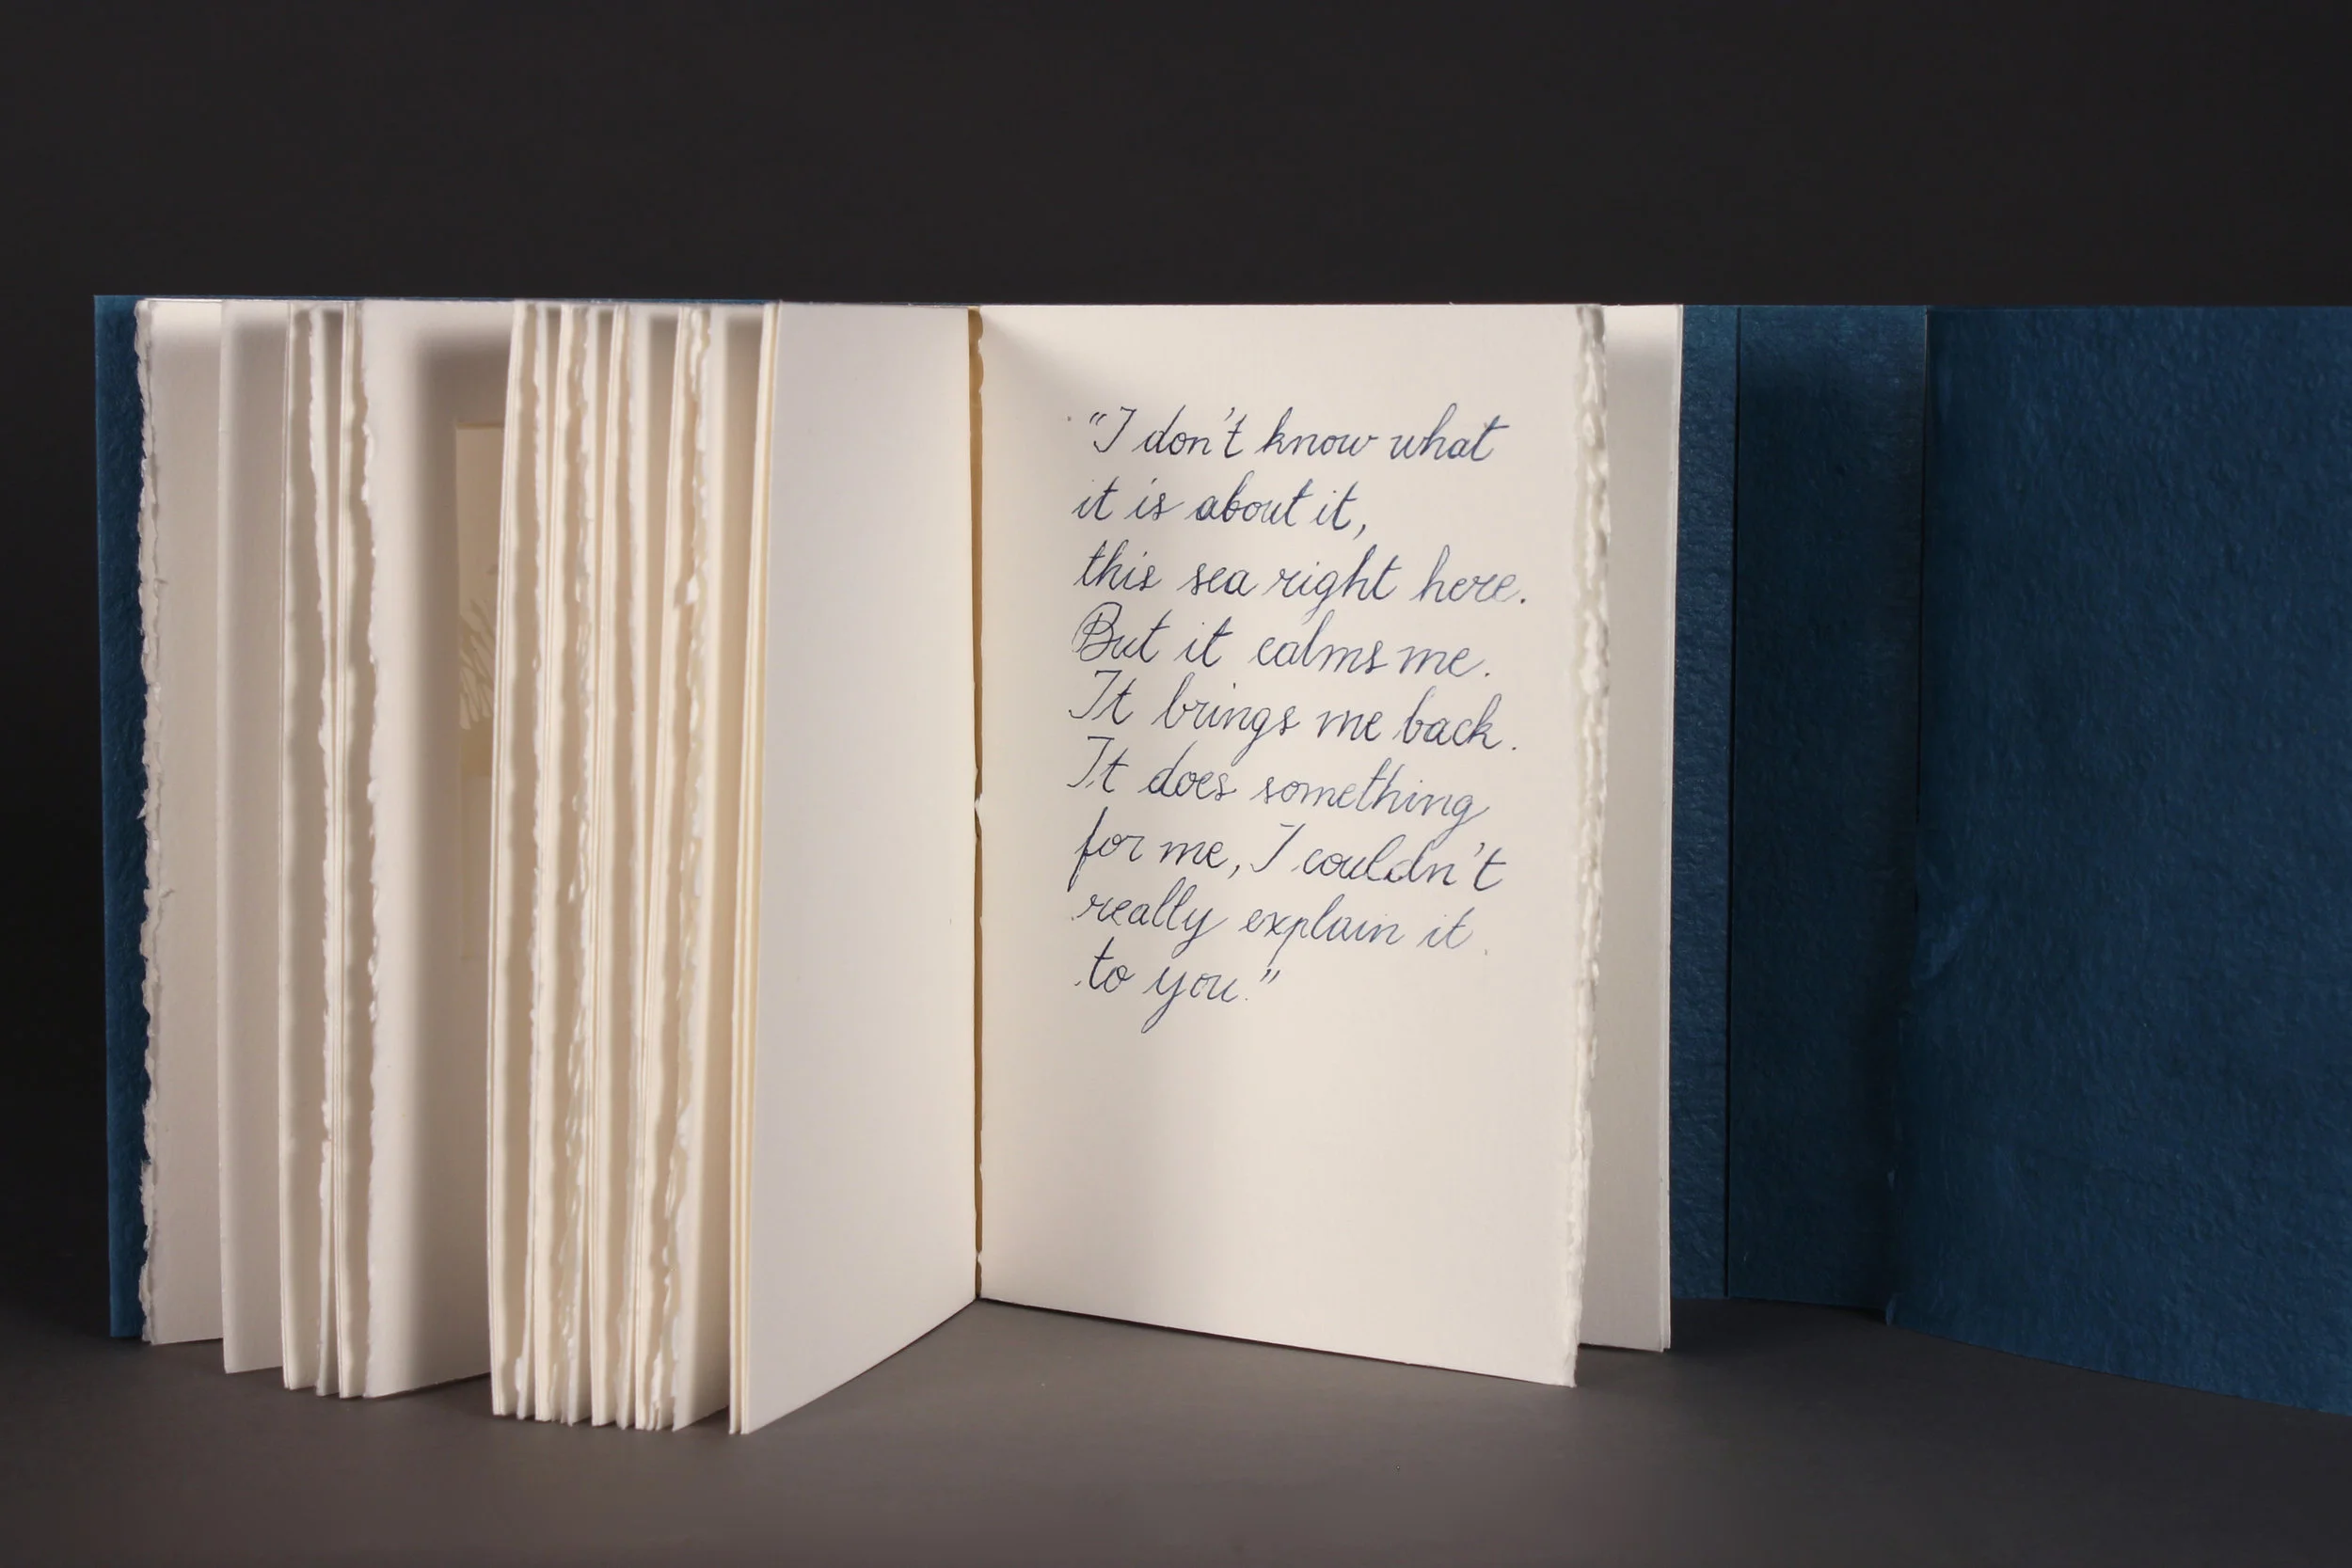 “I don't know what
it is about it,
this sea right here.
But it calms me.
It brings me back.
It does something
for me, I couldn't
really explain it
to you.”